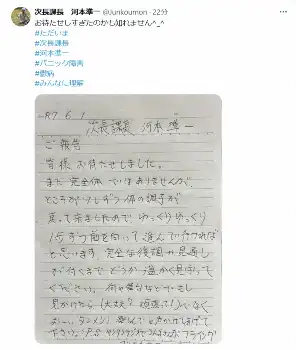 次長課長 河本準一 @Junkoumon・22分
お待たせしすぎたのかも知れません^_^
#ただいま
#次長課長
#河本準一
#パニック障害
#鬱病
#みんなに理解
R7.6.1
次長課長 河本準一
ご報告
皆様 お待たせしました。
まだ完全体ではありませんが、
ところが少しずつ体の調子が
戻って来ましたのでゆっくりゆっくり
1歩ずつ前を向いて進んで行ければ
と思います。完全な復調の見通し
が付くまでどうか温かく見守って
ください。
見かけたら(大丈夫?頑張って!)でなく